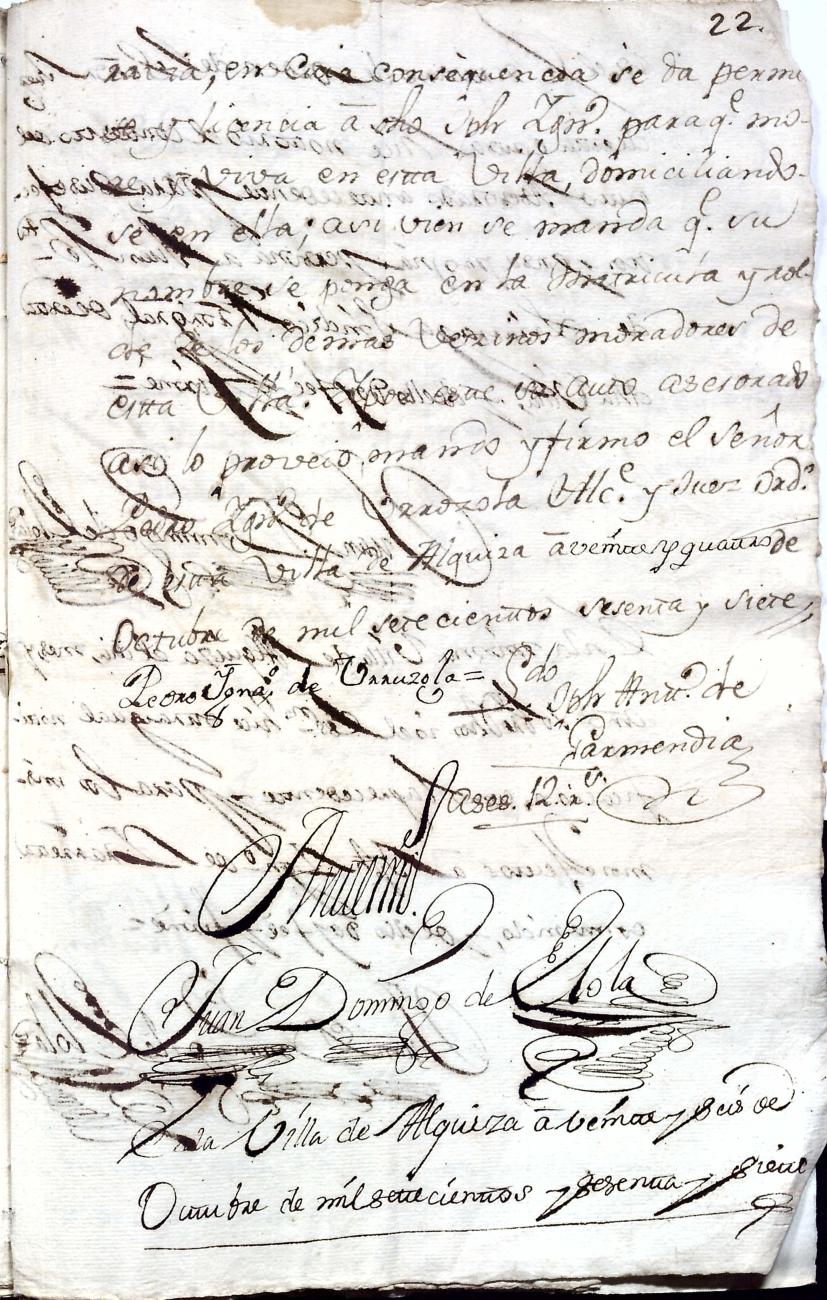 22.
en Cuia consequencia se da permi
y licencia â dho Jph Ygn.º para q.e mo-
re y viva en estta Villa, domiciliando-
se en ella; asi vien se manda q.e su
nombre se ponga en la Matricula y rol
de los demas Vezinos moradores de
estta Villa. Y por este su auto asesorado
asi lo proveiò, mandò y firmo el señor
Pedro Ygn.º de Urruzola Alc.e y Juez Ord.º
de estta Villa de Alquiza â veintte y quattro de
Octubre de mil setecientos sesenta y siete,,
Pedro Ygna.º de Urruzola = L.do Jph Antt.º de
Garmendia
Ases.
Antte mi
Juan Domingo de Elola
En la Villa de Alquiza â veintte y seis de
Octtubre de mil settecienttos y sesentta y siette